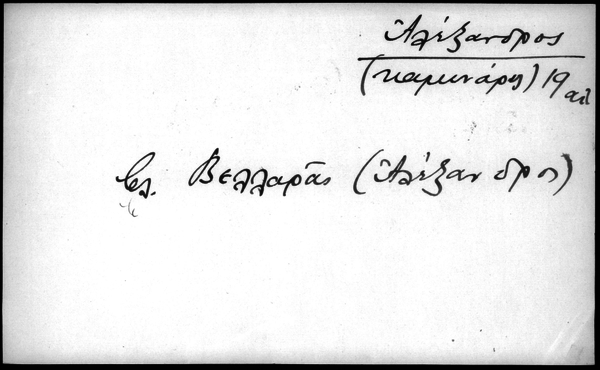 Ἀλέξανδρος
(καμινάρης) 19 αἰ
βλ. Βελλαρᾶς (Ἀλέξανδρος)